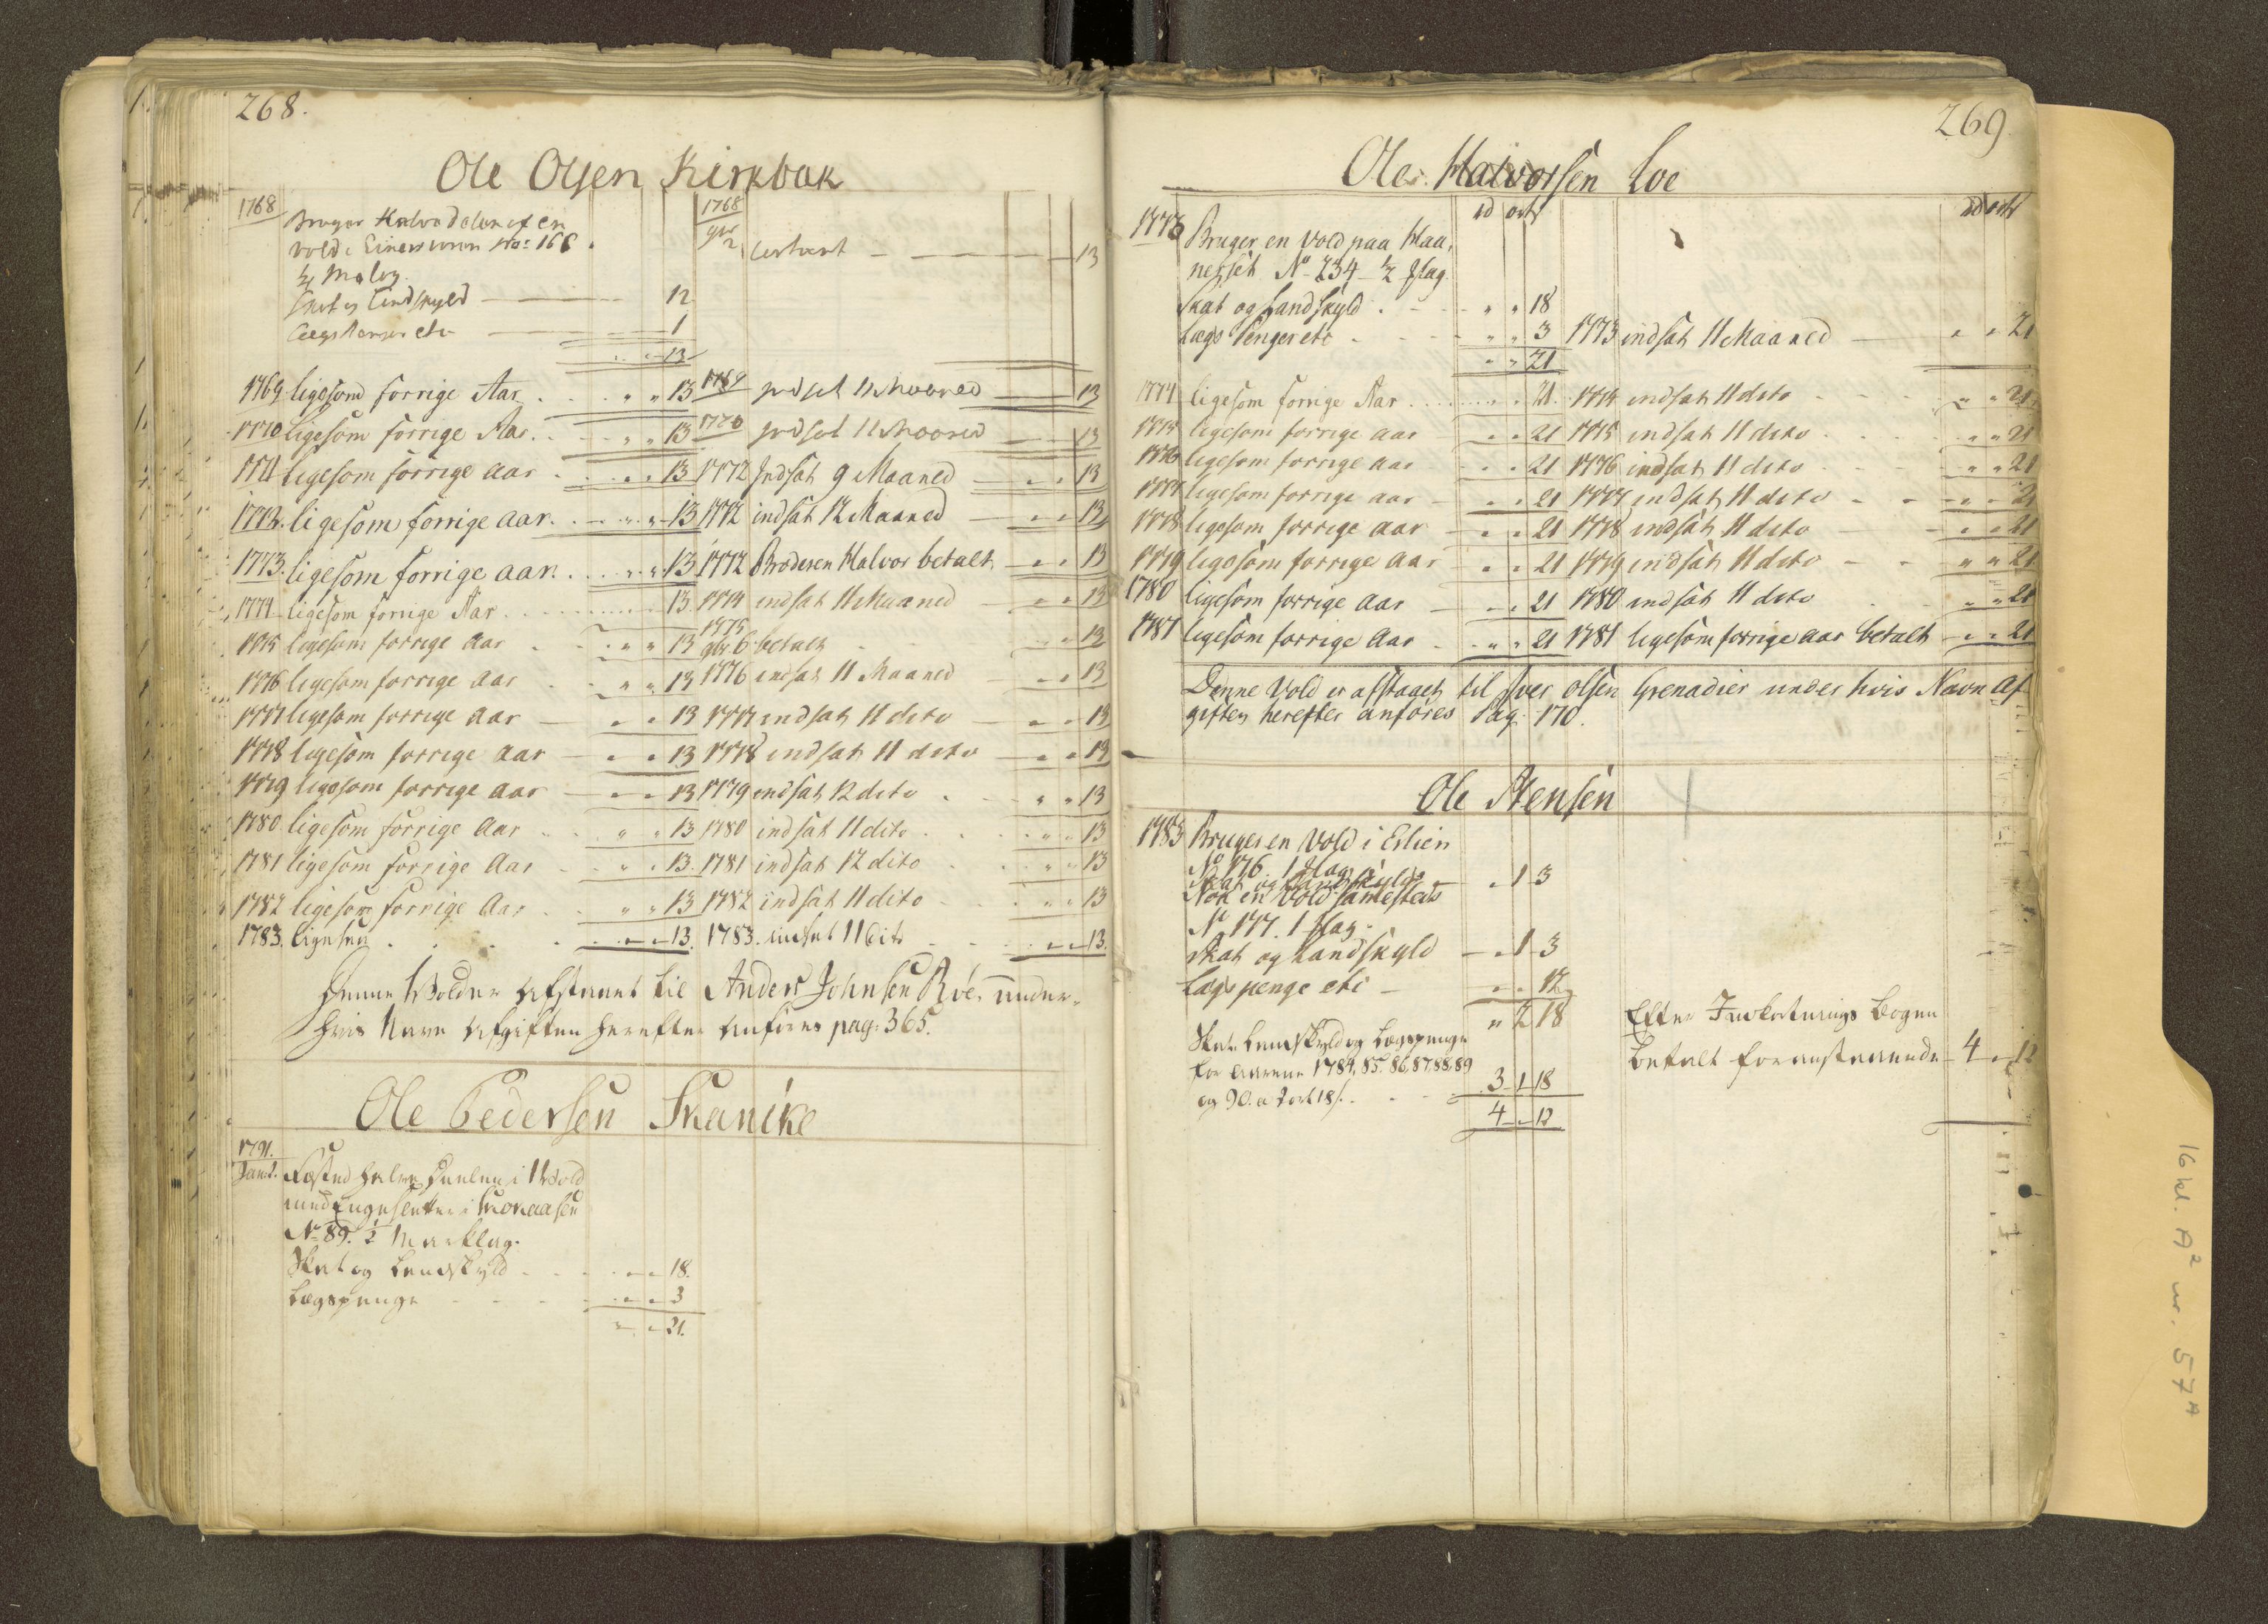 268.
Ole Olsen Kirkbak
1768 Bruger Halvedelen af en
vold i Einersvoren No: 166
½ Mrlag.
Skat og Landskyld 12
Lægspenger etc 1
" " 13
1768 9br 2 Contant 13
1769 ligesom forrige Aar " " 13 1769 indsat 11 Maaned 13
1770 ligesom forrige Aar " " 13 1770 indsat 11 Maaned 13
1771 ligesom forrige aar " " 13 1772 Indsat 9 Maaned " " 13
1772. ligesom forrige aar. " " 13 1772 indsat 12 Maaned " " 13
1773. ligesom forrige aar. " " 13 1772 Broderen Halvor betalt " " 13
1774 ligesom forrige Aar " " 13 1774 indsat 11 Maaned " " 13
1775 ligesom forrige aar " " 13 1775 9br 6 betalt " " 13
1776 ligesom forrige aar " " 13 1776 indsat 11 Maaned " " 13
1777 ligesom forrige aar " " 13 1777 indsat 11 dito " " 13
1778 ligesom forrige aar " " 13 1778 indsat 11 dito " " 13
1779 ligesom forrige aar " " 13 1779 indsat 12 dito " " 13
1780 ligesom forrige Aar " " 13 1780 indsat 11 dito " " 13
1781 ligesom forrige Aar " " 13. 1781 indsat 12 dito " " 13
1782 ligesom forrige Aar " " 13 1782 indsat 11 dito " " 13
1783. ligesen " " 13. 1783. indsat 11 dito " " 13.
Denne Vold er afstaaet til Anders Johnsen Röe, under
hvis Navn Afgiften herefter anföres pag: 365.
Ole Pedersen Skancke
1791.
Janr. Fæsted halve Deelen i 1 Vold
med Engesletter i
No 89. ½ Marklag.
Skat og Landskyld " " 18.
Lægspenge " " 3
" " 21.
269
Ole Halvorsen Loe
rd ort rd ort
1773 Bruger en Vold paa Haa,
nesset No 234 ½ Mlag.
Skat og Landskyld " " 18
Lægs Penger etc " " 3 1773 indsat 11 Maaned " " 21
" " 21
1774 ligesom forrige Aar " " 21. 1774 indsat 11 dito " " 21
1775 ligesom forrige aar " " 21 1775 indsat 11 dito " " 21
1776 ligesom forrige aar " " 21 1776 indsat 11 dito " " 21
1777 ligesom forrige aar " " 21 1777 indsat 11 dito " " 21
1778 ligesom forrige aar " " 21 1778 indsat 11 dito " " 21
1779 ligesom forrige aar " " 21 1779 indsat 11 dito " " 21
1780 ligesom forrige aar " " 21 1780 indsat 11 dito " " 21
1781 ligesom forrige Aar " " 21 1781 ligesom forrige aar betalt " " 21
Denne Vold er afstaaet til Iver Olsen Grenadier under hvis Navn Af
giften herefter anföres Pag: 170.
Ole Stensen
1783 Bruger en Vold i Erlien
No 176 1 Mlag
Skat og Landskyld " 1 3
Nok en Vold samesteds
No 177. 1 Mlag.
Skat og Landskyld " 1 3
Lægspenge etc " " 12
" 2 18
Skat Landskyld og Lægspenge
for Aarene 1784, 85. 86, 87, 88, 89
og 90. a 2 ort 18 s. 3 1 18
4 " 12
Efter Indkortnings Bogen
betalt foranstaaende 4 " 12
16 kl. A² nr. 57ᴬ